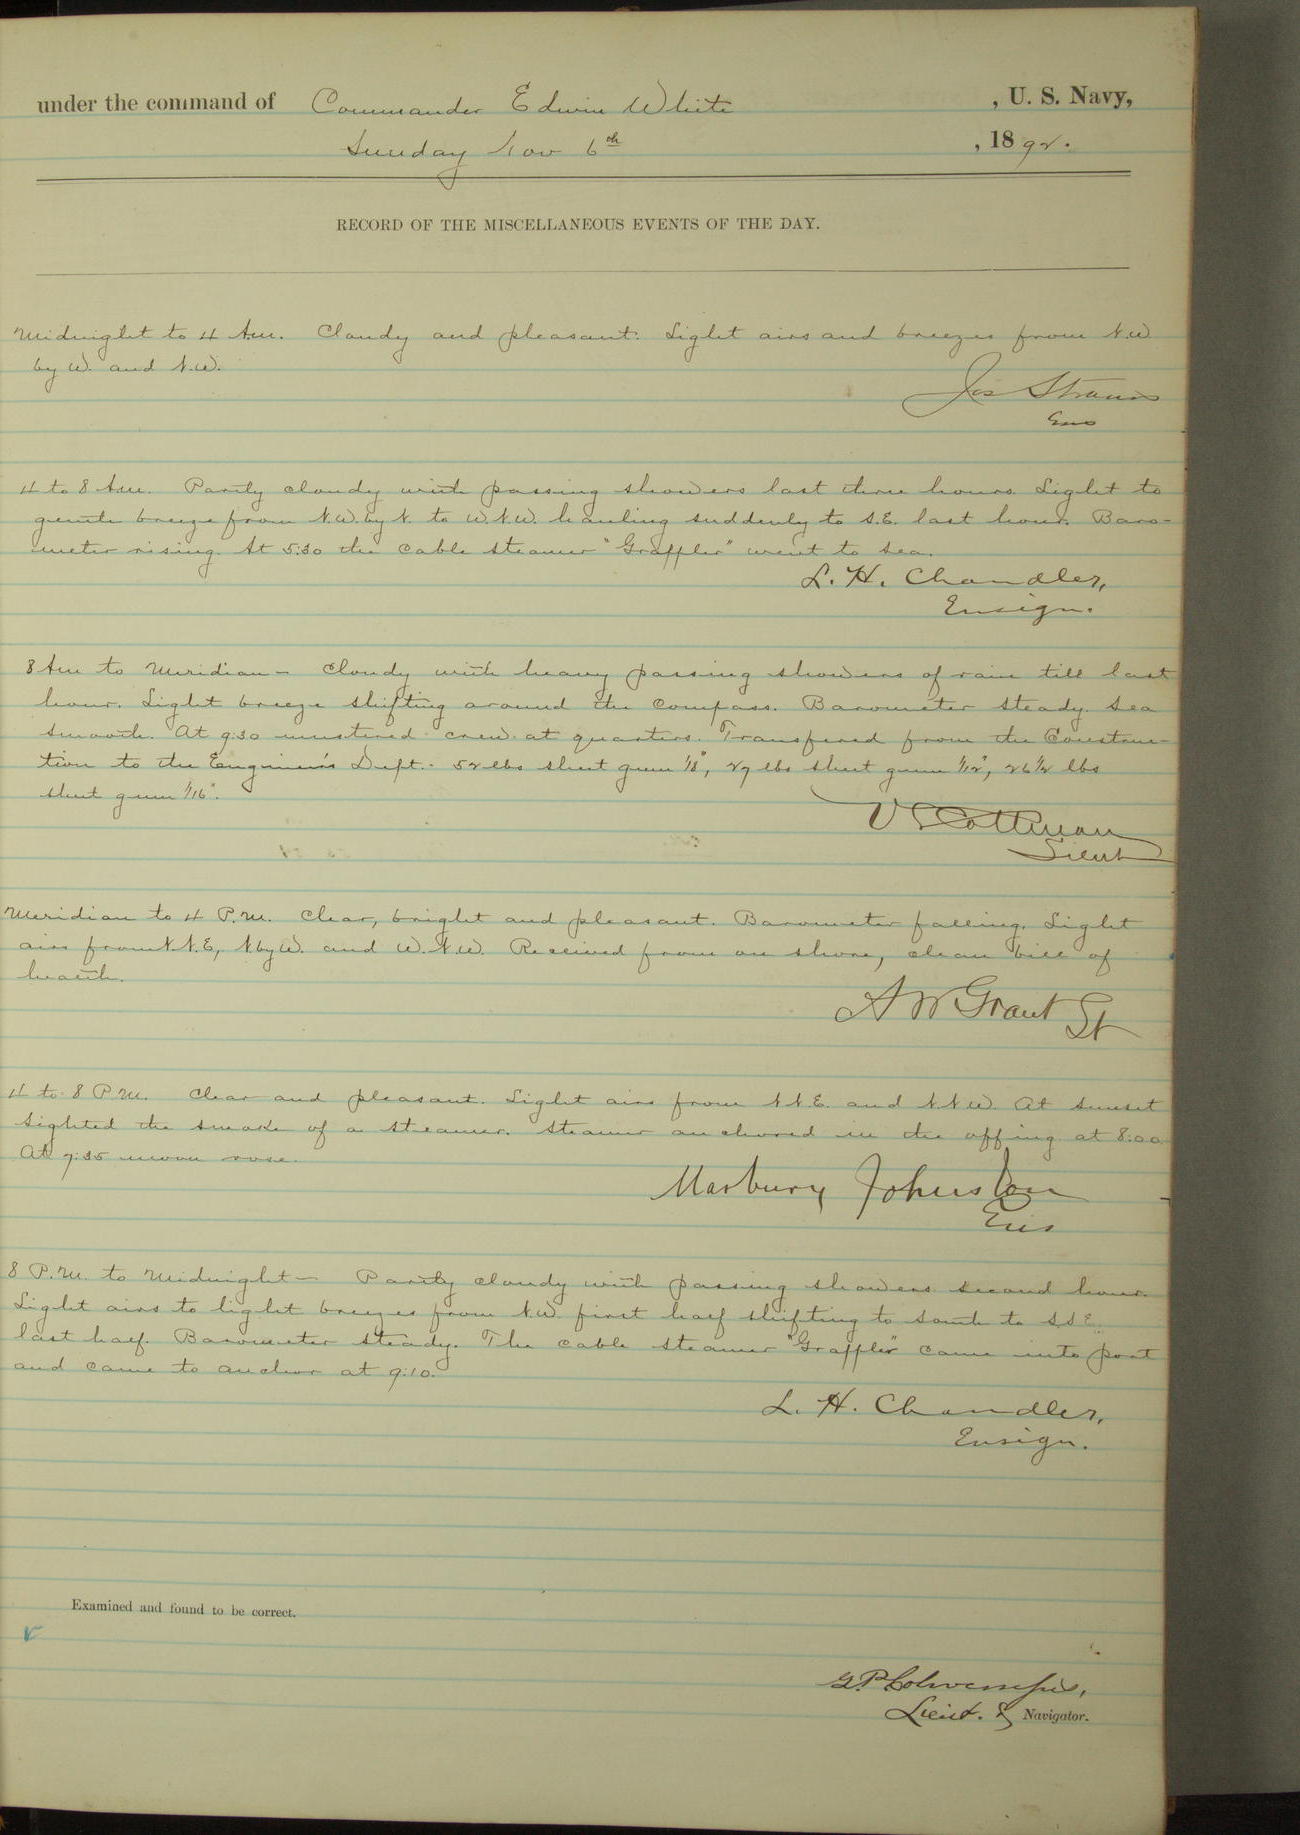 under the command of Commander Edwin White , U. S. Navy,
Sunday Nov 6th , 1892.
RECORD OF THE MISCELLANEOUS EVENTS OF THE DAY.
Midnight to 4 A.m. Cloudy and pleasant. Light airs and breezes from N.W.
by W. and N.W.
Jos Strauss
Ens
4 to 8 A.m. Partly cloudy with passing showers last three hours. Light to
gentle breeze from N.W. by N. to W.N.W. hauling suddenly to S.E. last hour. Baro-
meter rising. At 5:30 the cable steamer "Grappler" went to sea.
L. H. Chandler,
Ensign.
8 Am to Meridian – Cloudy with heavy passing showers of rain till last
hour. Light breeze shifting around the compass. Barometer steady. Sea
smooth. At 9:30 mustered crew at quarters. Transfered from the Construc-
tion to the Engineer's Dept. 52 lbs sheet gum 1/8", 27 lbs sheet gum 1/12", 26 1/2 lbs
sheet gum 1/16".
V S Cottman
Lieut
Meridian to 4 P.M. Clear, bright and pleasant. Barometer falling. Light
airs from N.N.E, N. by W. and W.N.W. Received from on shore, clean bill of
health.
A W Grant Lt
4 to 8 P.M. Clear and pleasant. Light airs from N.N.E. and N.N.W. At sunset
sighted the smoke of a steamer. Steamer anchored in the offing at 8:00
At 7:35 moon rose.
Marbury Johnston
Ens
8 P.M. to Midnight – Partly cloudy with passing showers second hour.
Light airs to light breezes from N.W. first half shifting to South to S.S.E.
last half. Barometer steady. The cable steamer "Grappler" came into port
and came to anchor at 9:10.
L. H. Chandler,
Ensign.
Examined and found to be correct.
G.P. Colvocoresses,
Lieut. & Navigator.